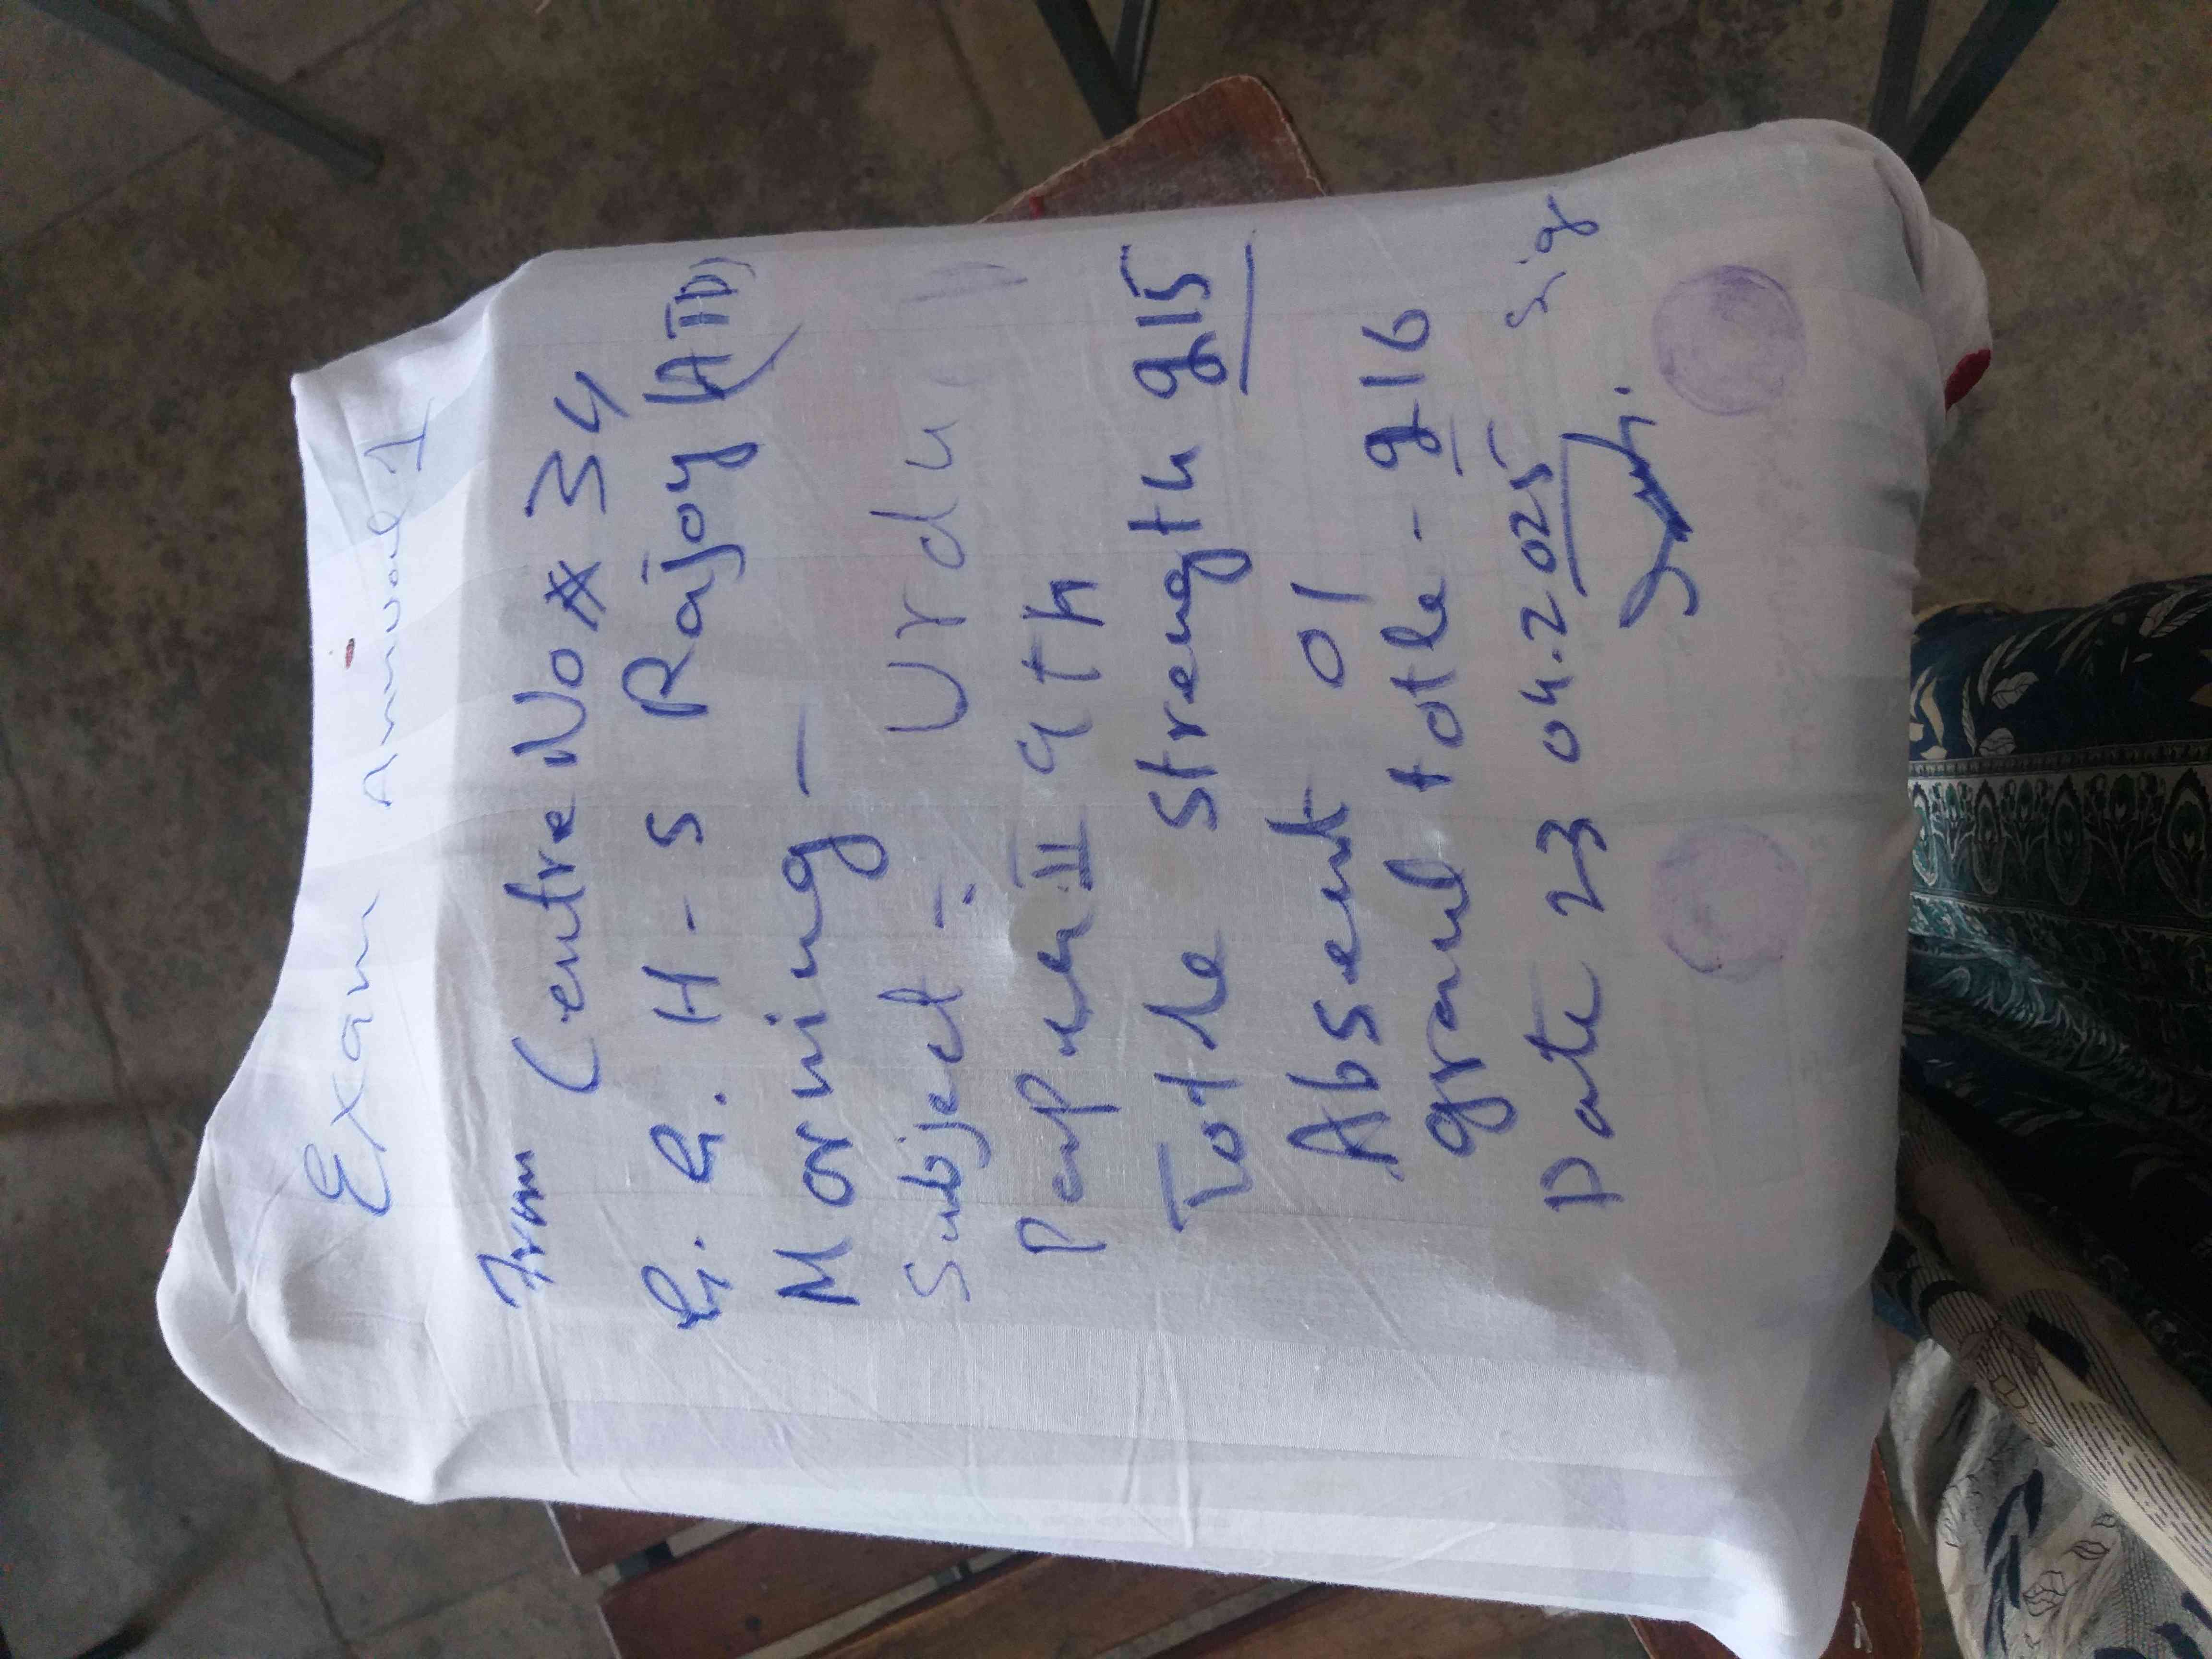 Exam Annual 1
From Centre No # 34
G. G. H-S Rajoya (ATD)
Morning —
Subject :- Urdu
Paper II 9th
Totle Strength 215
Absent 01
grand totle - 216
Date 23 04.2025
Sig